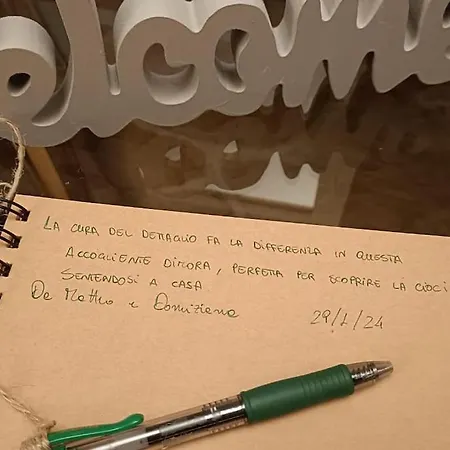 elcome
LA CURA DEL DETTAGLIO FA LA DIFFERENZA IN QUESTA
ACCOGLIENTE DIMORA, PERFETTA PER SCOPRIRE LA CIOCI
SENTENDOSI A CASA.
De Matteo e Domiziana
29/1/24